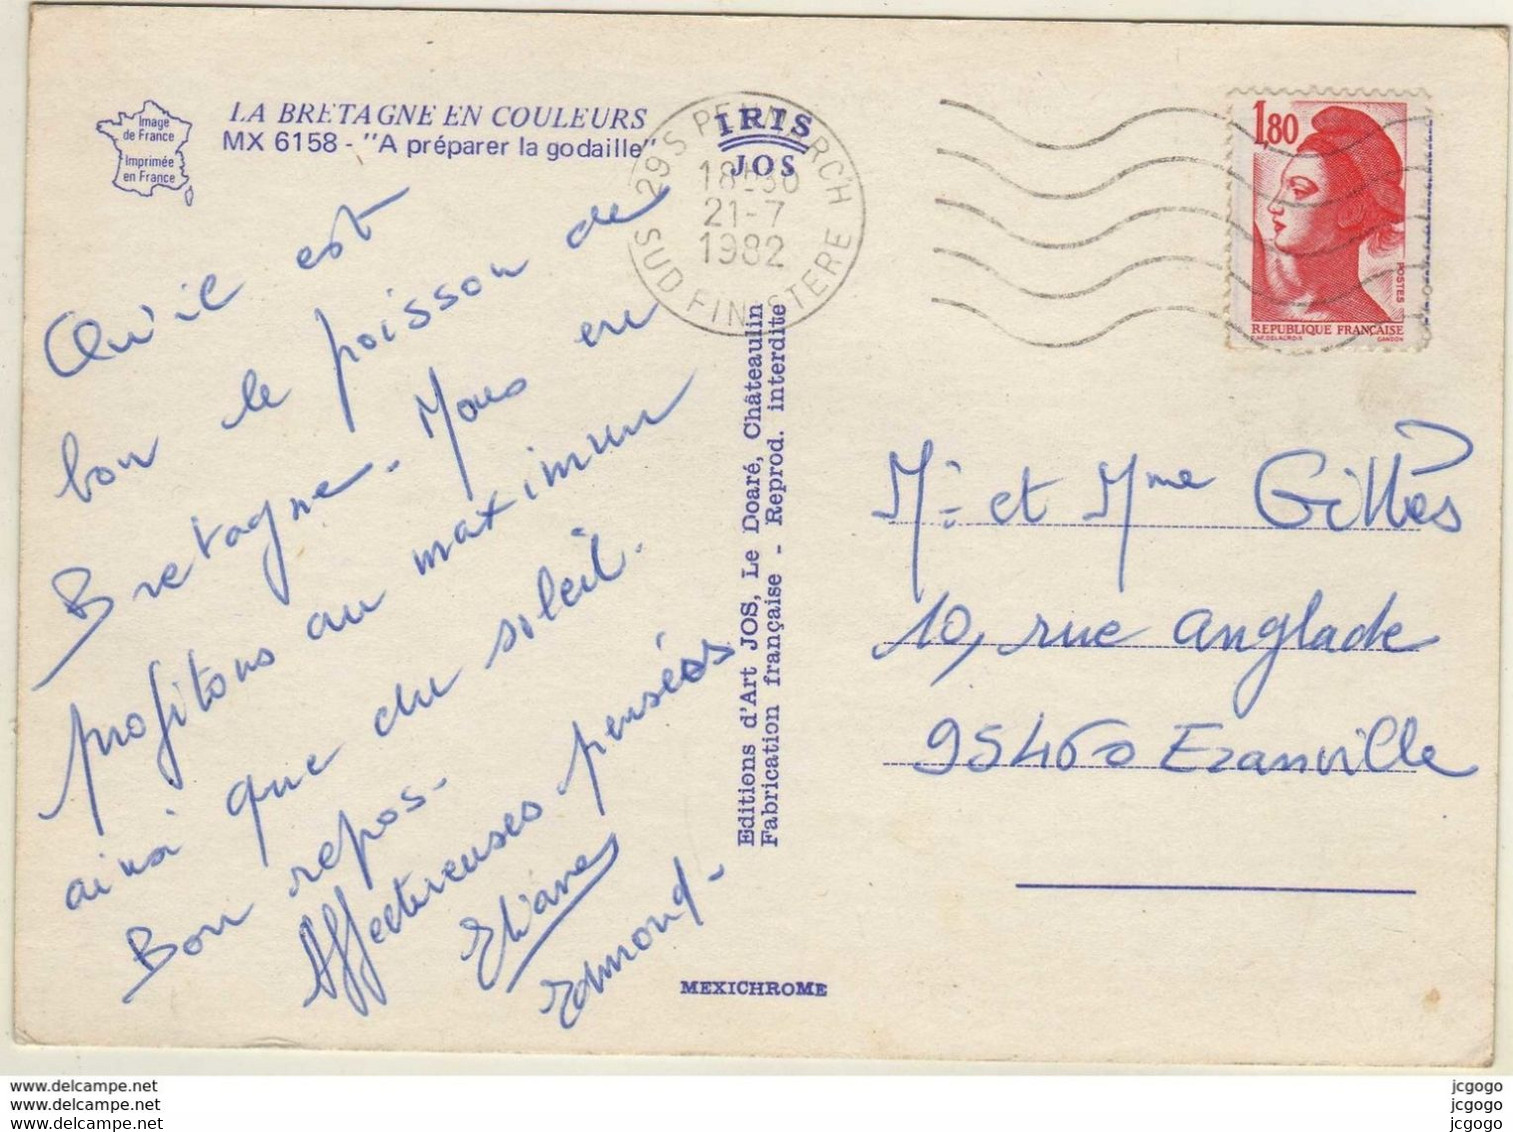 Image
de France
Imprimée
en France
LA BRETAGNE EN COULEURS
MX 6158 - "A préparer la godaille"
IRIS
JOS
29S PENMARCH
18H30
21-7
1982
SUD FINISTERE
1,80
POSTES
REPUBLIQUE FRANÇAISE
GANDON
Qu'il est
bon le poisson de
Bretagne. Nous en
profitons au maximum
ainsi que du soleil.
Bon repos.
Affectueuses pensées
Eliane
Edmond.
Editions d'Art JOS, Le Doaré, Châteaulin
Fabrication française - Reprod. interdite
Mr et Mme Gilles
10, rue Anglade
95460 Ezanville
MEXICHROME
www.delcampe.net
www.delcampe.net
www.delcampe.net
jcgogo
jcgogo
jcgogo